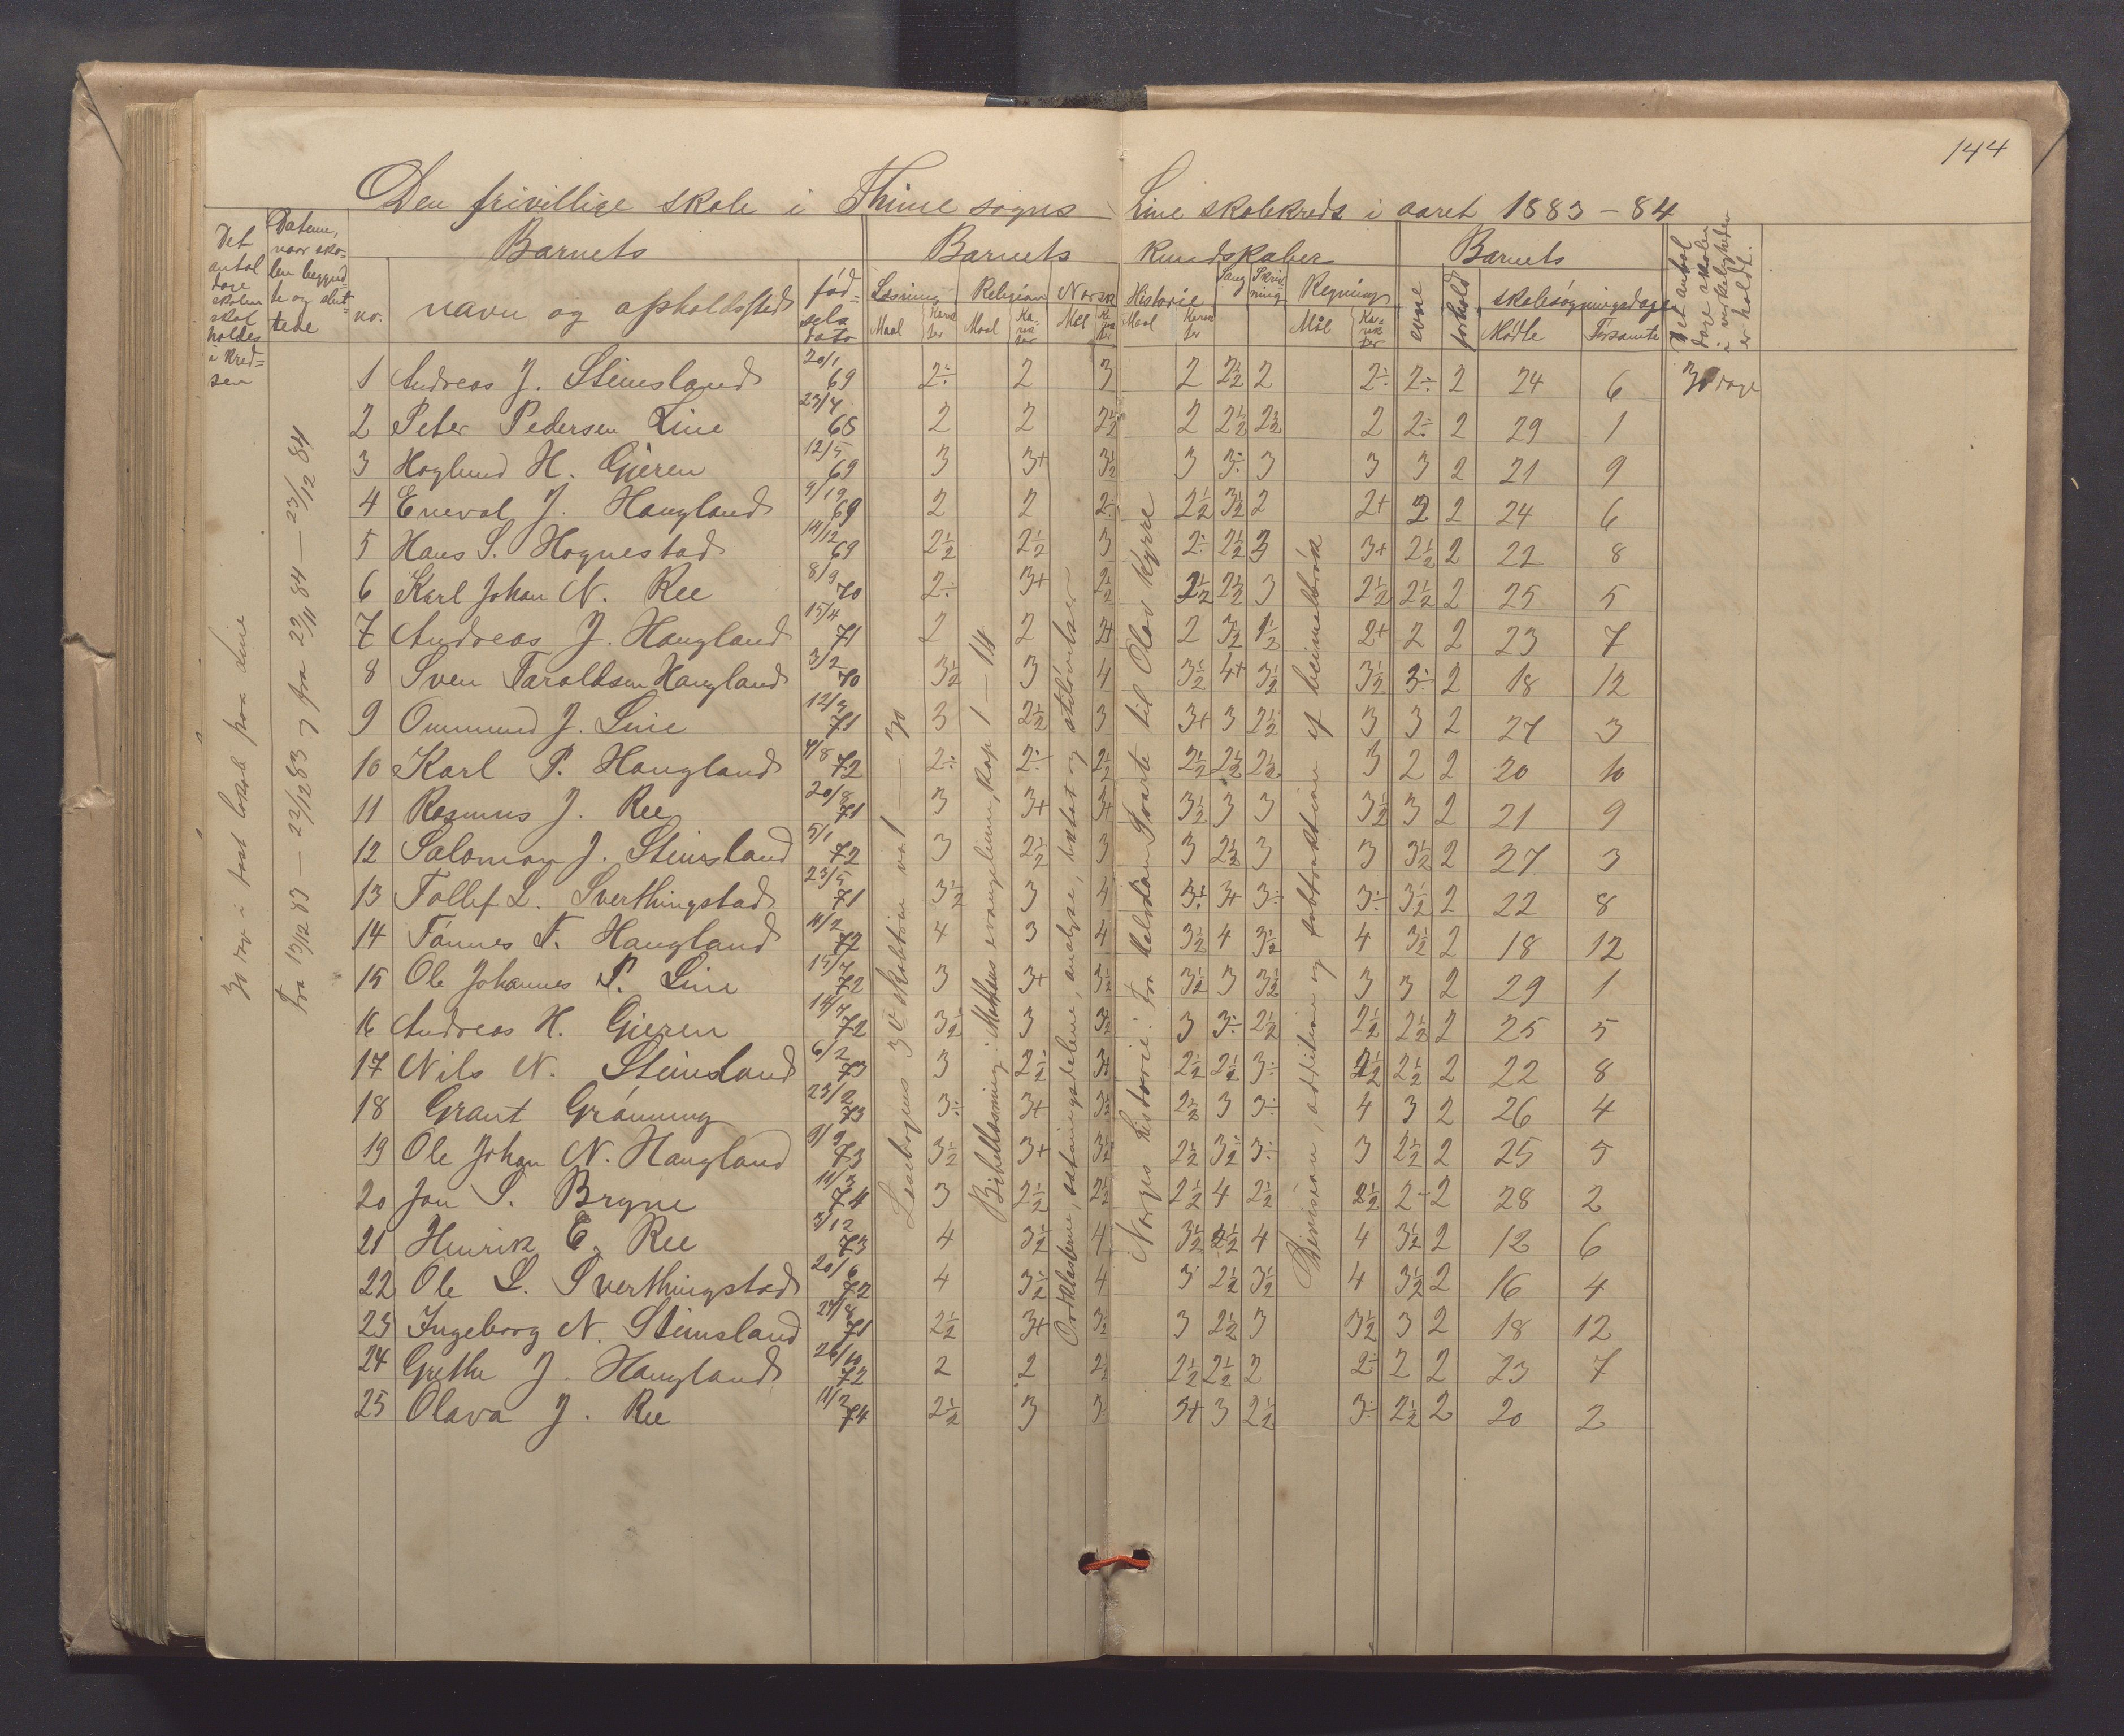 144
Den frivillige skole i Thime sogns Line skolekreds i aaret 1883-84
Det antal dage skolen skal holdes i kredsen
Datum, naar skolen begynd-te og slut-tede
Barnets
Barnets kundskaber
Barnets
Det antal dage skolen i virkeligheden er holdt.
no. navn og opholdssted fød-sels dato
Læsning Religion Norsk Historie Sang Skriv-ning Regning evne forhold skolesøgningsdage
Maal Karakter Maal Ka-rak-ter Mål Maal Karakter Mål Ka-rak-ter Mødte Forsømte
30 dage i fast lokale paa Line
Fra 13/12 83 — 22/12 83 og fra 22/11 84 — 23/12 84
Læsebogens 3 v skoletrin 1 — 30
Bibellæsning: Matheus evangelium, kap 1 — 14
Ordklasserne, sætningsdelene, analyse, og stiløvelser
Norges historie: Fra Halvdan Svarte til Olav Kyrre
Division, addition og subtraktion af desimalbrøk
1 Andreas J. Stensland 20/1 69 2÷ 2 3 2 2½ 2 2÷ 2÷ 2 24 6 30 dage
2 Peter Pedersen Line 23/4 68 2 2 2½ 2 2½ 2½ 2 2÷ 2 29 1
3 Hoglund H. Gjeren 12/5 69 3 3+ 3½ 3 3÷ 3 3 3 2 21 9
4 Eneval J. Haugland 9/19 69 2 2 2÷ 2½ 3½ 2 2+ 2 2 24 6
5 Hans S. Hognestad 14/12 69 2½ 2½ 3 2÷ 2½ 3 3+ 2½ 2 22 8
6 Karl Johan N. Ree 8/9 70 2÷ 3+ 2½ 2½ 2½ 3 2½ 2½ 2 25 5
7 Andreas J. Haugland 15/4 71 2 2 2+ 2 3½ 1½ 2+ 2 2 23 7
8 Sven Taraldsen Haugland 3/2 70 3½ 3 4 3½ 4+ 3½ 3½ 3÷ 2 18 12
9 Ommund J. Line 12/3 71 3 2½ 3 3+ 3 2½ 3 3 2 27 3
10 Karl P. Haugland 4/8 72 2÷ 2÷ 2½ 2½ 2½ 2½ 3 2 2 20 10
11 Rasmus J. Ree 20/8 71 3 3+ 3+ 3½ 3 3 3½ 3 2 21 9
12 Salomon J. Stensland 5/1 72 3 2½ 3 3 2½ 3 3 3½ 2 27 3
13 Tollef L. Sverthingstad 23/5 71 3½ 3 4 3+ 3+ 3÷ 3÷ 3½ 2 22 8
14 Tønnes T. Haugland 11/2 72 4 3 4 3½ 4 3½ 4 3½ 2 18 12
15 Ole Johannes P. Line 15/7 72 3 3+ 3½ 3½ 3 3½ 3 3 2 29 1
16 Andreas H. Gjeren 14/7 72 3½ 3 3½ 3 3÷ 2½ 2½ 2½ 2 25 5
17 Nils N. Stensland 6/2 73 3 2½ 3+ 2½ 2½ 3÷ 2½ 2½ 2 22 8
18 Grant Grønning 23/2 73 3÷ 3+ 3½ 2½ 3 3÷ 4 3 2 26 4
19 Ole Johan N. Haugland 9/9 73 3½ 3+ 3½ 2½ 3½ 3÷ 3 2½ 2 25 5
20 Jon S. Bryne 11/3 74 3 2½ 2½ 2½ 4 2½ 2½ 2÷ 2 28 2
21 Henrik E. Ree 3/12 73 4 3½ 4 3½ 2½ 4 4 3½ 2 12 6
22 Ole L. Sverthingstad 20/6 72 4 3½ 4 3 2½ 3½ 4 3½ 2 16 4
23 Ingeborg N. Stensland 27/8 71 2½ 3+ 3½ 3 2½ 3 3½ 3 2 18 12
24 Grethe J. Haugland 26/10 72 2 2 2½ 2½ 2½ 2 2÷ 2 2 23 7
25 Olava J. Ree 11/2 74 2½ 3 3 3+ 3 2½ 3÷ 2½ 2 20 2